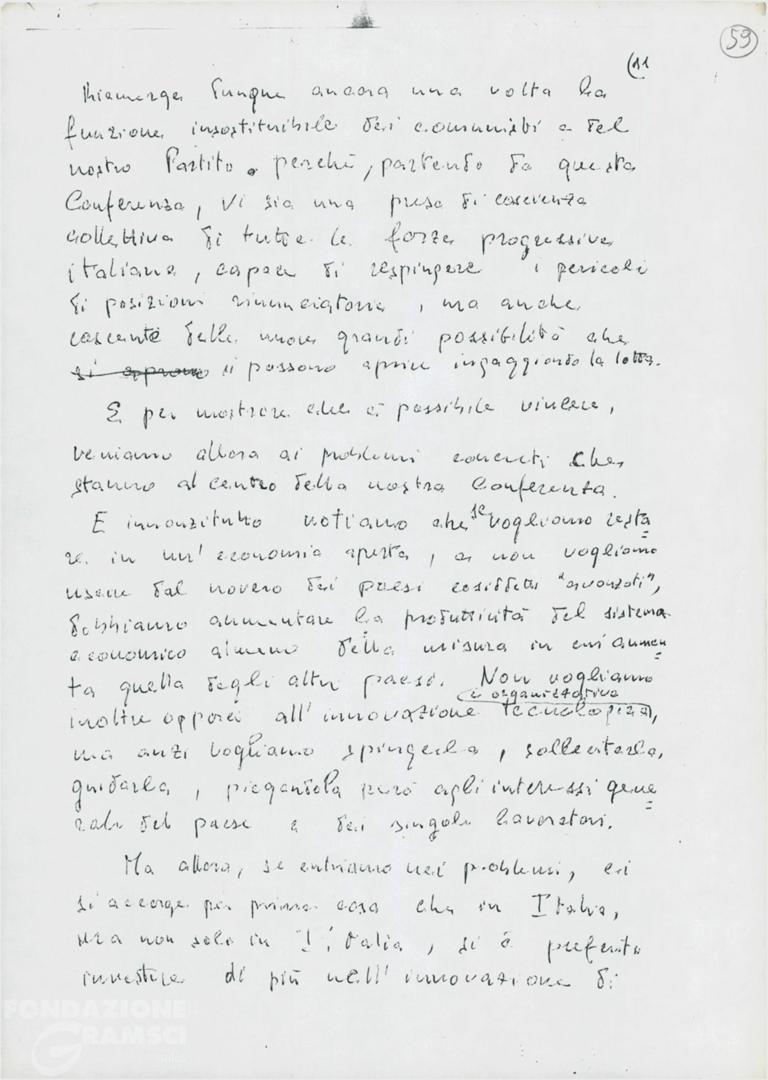 59
(11
Riemerge dunque ancora una volta la
funzione insostituibile dei comunisti e del
nostro Partito. perché, partendo da questa
Conferenza, vi sia una presa di coscienza
collettiva di tutte le forze progressive
italiane, capace di respingere i pericoli
di posizioni rinunciatorie, ma anche
cosciente delle nuove grandi possibilità che
si aprono si possono aprire ingaggiando la lotta.
E per mostrare che è possibile vincere,
veniamo allora ai problemi concreti che
stanno al centro della nostra Conferenza.
E innanzitutto notiamo che se vogliamo resta
re in un'economia aperta, e non vogliamo
uscire dal novero dei paesi cosiddetti "avanzati",
dobbiamo aumentare la produttività del sistema
economico almeno della misura in cui aumen
ta quella degli altri paesi. Non vogliamo
e organizzativa
inoltre opporci all'innovazione tecnologica,
ma anzi vogliamo spingerla, sollecitarla,
guidarla, piegandola però agli interessi gene
rali del paese e dei singoli lavoratori.
Ma allora, se entriamo nei problemi, ci
si accorge per prima cosa che in Italia,
ma non solo in Italia, si è preferito
investire di più nell'innovazione di
FONDAZIONE
GRAMSCI